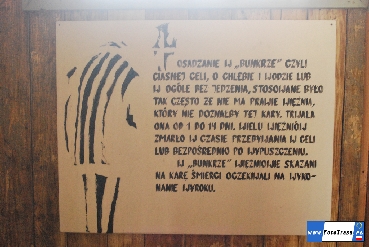 OSADZANIE W „BUNKRZE” CZYLI
CIASNEJ CELI, O CHLEBIE I WODZIE LUB
W OGÓLE BEZ JEDZENIA, STOSOWANE BYŁO
TAK CZĘSTO ŻE NIE MA PRAWIE WIĘŹNIA,
KTÓRY NIE DOZNAŁBY TEJ KARY. TRWAŁA
ONA OD 1 DO 14 DNI. WIELU WIĘŹNIÓW
ZMARŁO W CZASIE PRZEBYWANIA W CELI
LUB BEZPOŚREDNIO PO WYPUSZCZENIU.
W „BUNKRZE” WIĘŹNIOWIE SKAZANI
NA KARĘ ŚMIERCI OCZEKIWALI NA WYKO-
NANIE WYROKU.
www.FotoTrasa.eu